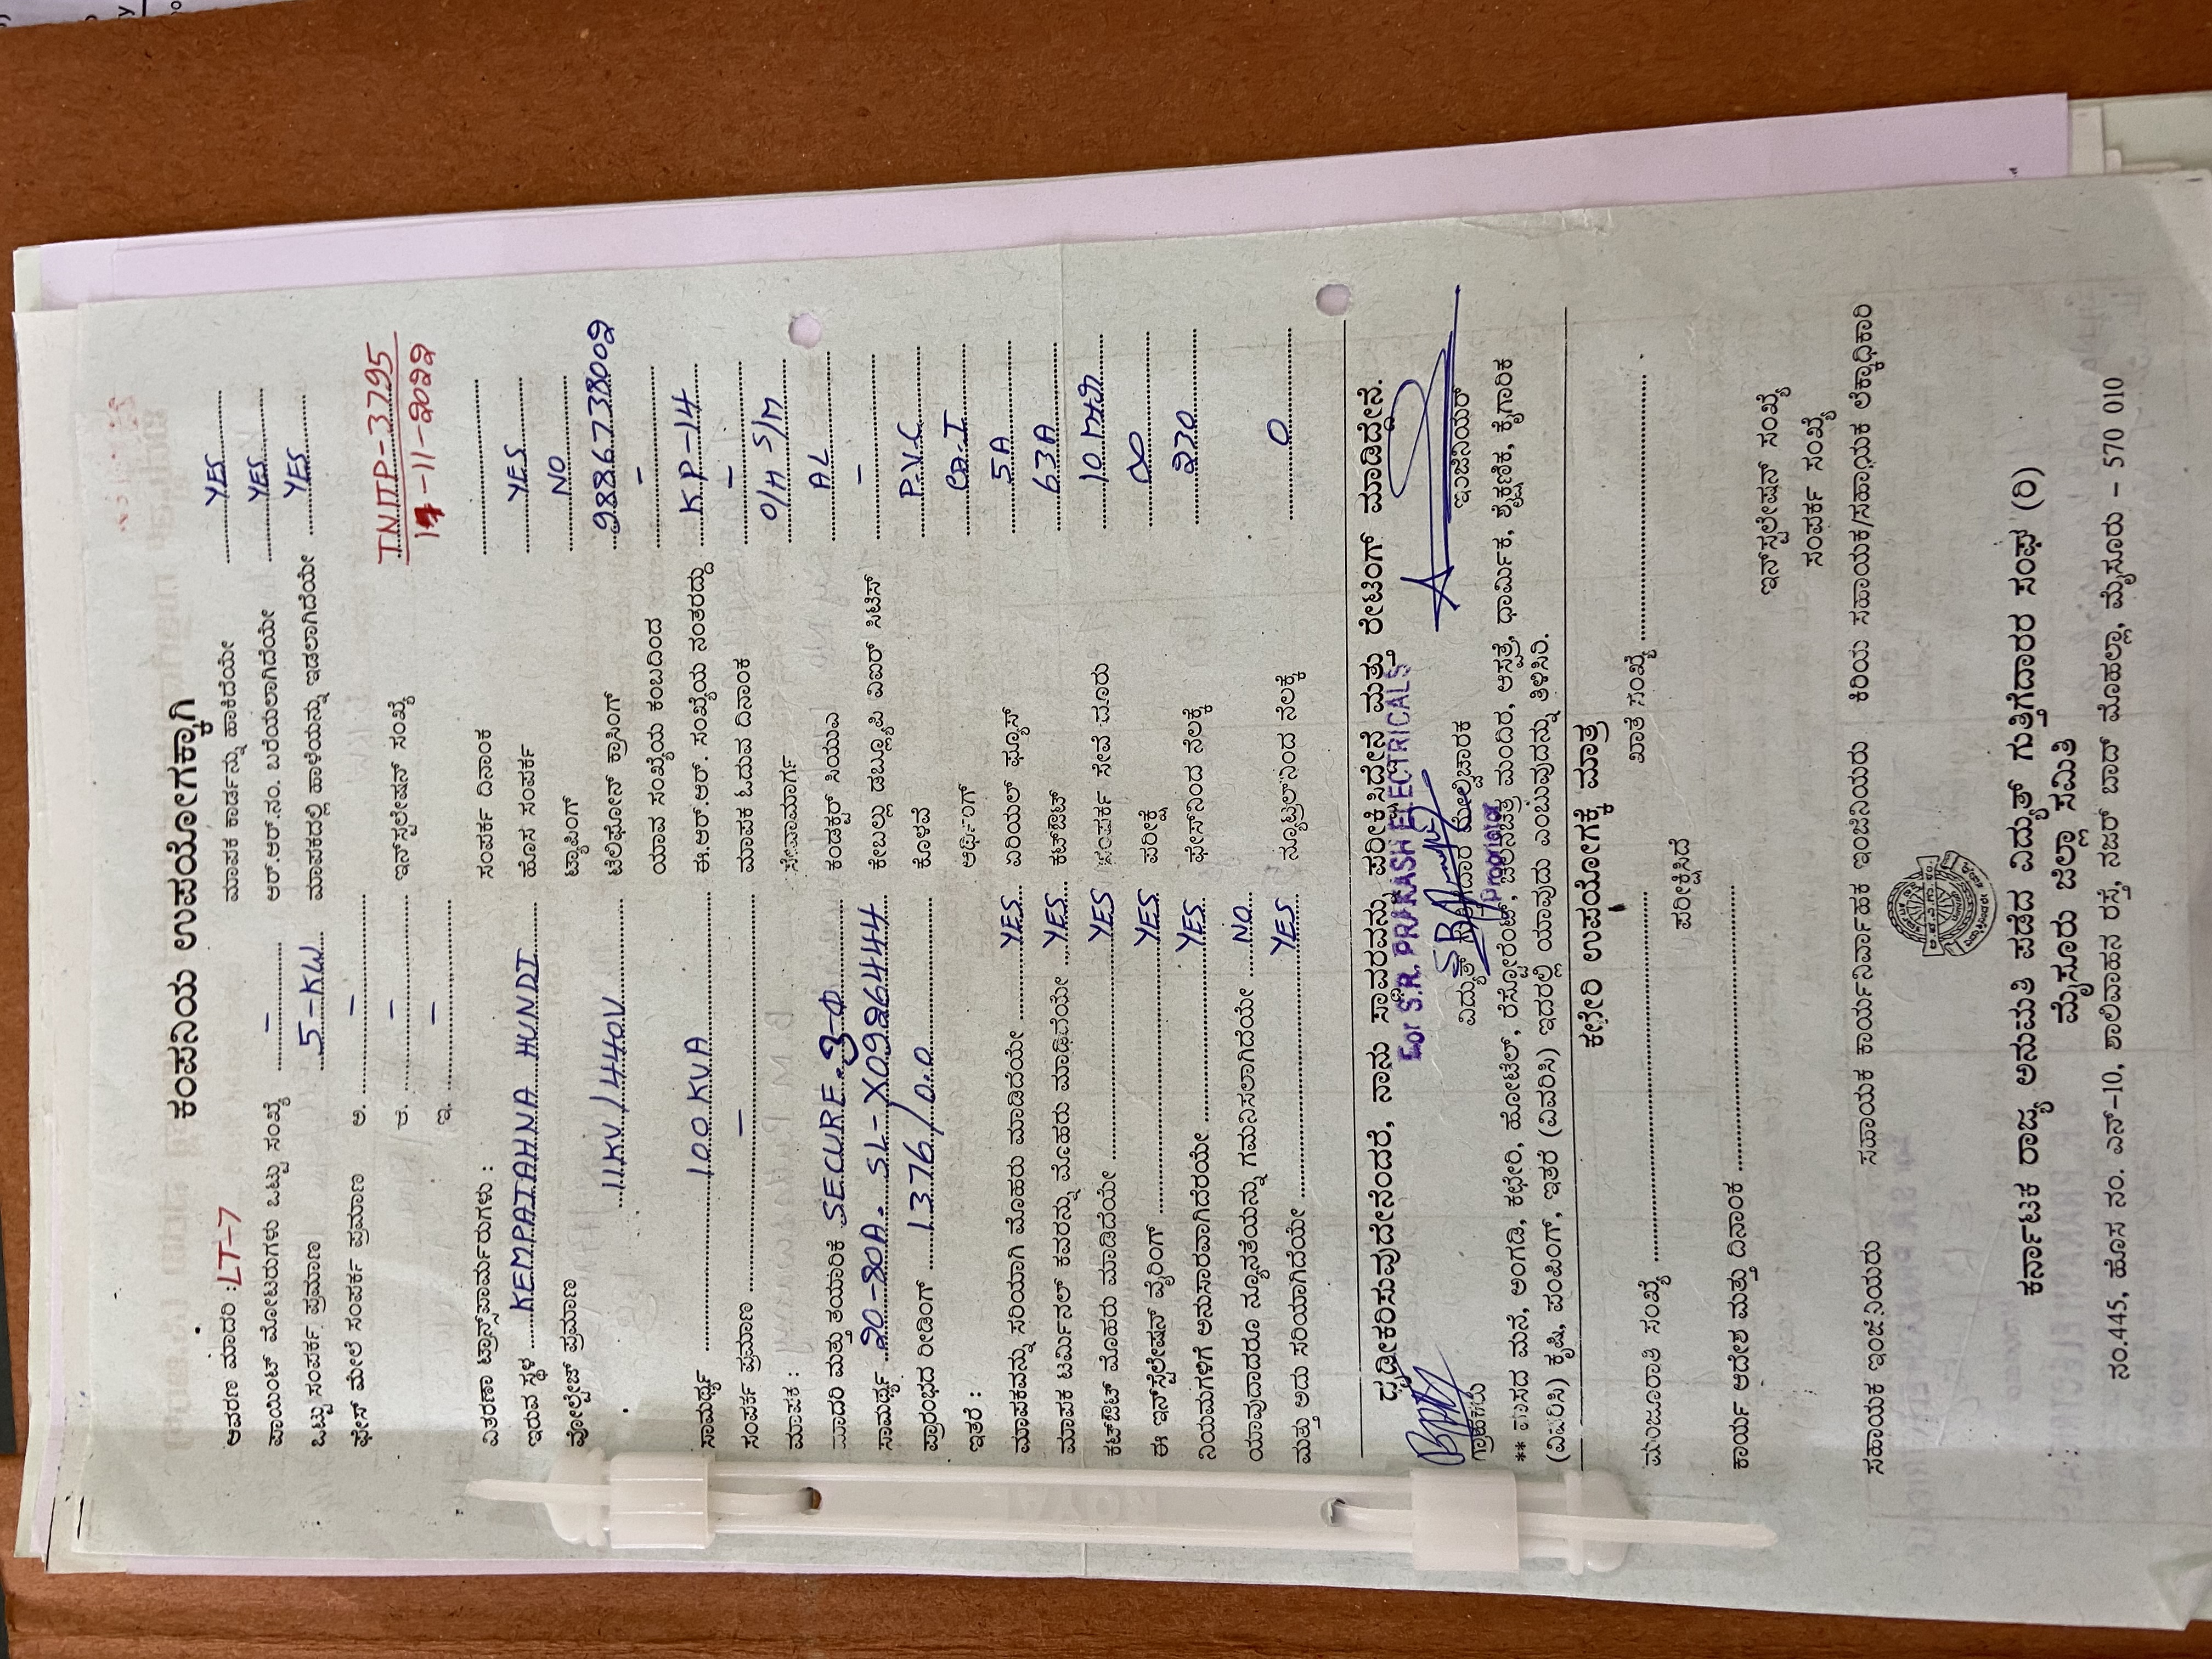 ಕಂಪನಿಯ ಉಪಯೋಗಕ್ಕಾಗಿ
ಆವರಣ ಮಾದರಿ : LT-7 ಮಾಪಕ ಕಾರ್ಡನ್ನು ಹಾಕಿದೆಯೇ YES
ಪಾಯಿಂಟ್ ಮೋಟರುಗಳು ಒಟ್ಟು ಸಂಖ್ಯೆ – ಆರ್.ಆರ್.ನಂ. ಬರೆಯಲಾಗಿದೆಯೇ YES
ಒಟ್ಟು ಸಂಪರ್ಕ ಪ್ರಮಾಣ 5-KW ಮಾಪಕದಲ್ಲಿ ಹಾಳೆಯನ್ನು ಇಡಲಾಗಿದೆಯೇ YES
ಫೇಸ್ ಮೇಲೆ ಸಂಪರ್ಕ ಪ್ರಮಾಣ ಅ. –
ಆ. – ಇನ್‌ಸ್ಟಲೇಷನ್ ಸಂಖ್ಯೆ TNITP-3795
ಇ. – 17-11-2022
ವಿತರಣಾ ಟ್ರಾನ್ಸ್‌ಫಾರ್ಮರುಗಳು : ಸಂಪರ್ಕ ದಿನಾಂಕ
ಇರುವ ಸ್ಥಳ KEMPAIAHNA HUNDI ಹೊಸ ಸಂಪರ್ಕ YES
ವೋಲ್ಟೇಜ್ ಪ್ರಮಾಣ ಟ್ಯಾಪಿಂಗ್ NO
11KV/440V ಟೆಲಿಫೋನ್ ಕ್ರಾಸಿಂಗ್ 9886738002
ಯಾವ ಸಂಖ್ಯೆಯ ಕಂಬದಿಂದ –
ಸಾಮರ್ಥ್ಯ 100 KVA ಈ.ಆರ್.ಆರ್. ಸಂಖ್ಯೆಯ ನಂತರದ್ದು K.P-14
ಸಂಪರ್ಕ ಪ್ರಮಾಣ – ಮಾಪಕ ಓದುವ ದಿನಾಂಕ –
ಮಾಪಕ : ಸೇವಾಮಾರ್ಗ O/H S/M
ಮಾದರಿ ಮತ್ತು ತಯಾರಿಕೆ SECURE. 3-Φ ಕಂಡಕ್ಟರ್ ಸಿಯುವ AL
ಸಾಮರ್ಥ್ಯ 20-80A. SL-X0964444 ಕೇಬಲ್ಲು ಡಬ್ಲ್ಯೂಪಿ ವಿಐರ್ ಸಿಟಿಸ್ –
ಪ್ರಾರಂಭದ ರೀಡಿಂಗ್ 1376/0.0 ಕೊಳವೆ P.V.C
ಇತರೆ : ಅರ್ಥಿಂಗ್ G.I
ಮಾಪಕವನ್ನು ಸರಿಯಾಗಿ ಮೊಹರು ಮಾಡಿದೆಯೇ YES ಏರಿಯಲ್ ಫ್ಯೂಸ್ 5A
ಮಾಪಕ ಟರ್ಮಿನಲ್ ಕವರನ್ನು ಮೊಹರು ಮಾಡಿದೆಯೇ YES ಕಟ್‌ಔಟ್ 63A
ಕಟ್‌ಔಟ್ ಮೊಹರು ಮಾಡಿದೆಯೇ YES ಸಂಪರ್ಕ ಸೇವೆ ದೂರು 10 Mth
ಈ ಇನ್‌ಸ್ಟಲೇಷನ್ ವೈರಿಂಗ್ YES ಪರೀಕ್ಷೆ ∞
ನಿಯಮಗಳಿಗೆ ಅನುಸಾರವಾಗಿದೆಯೇ YES ಫೇಸ್‌ನಿಂದ ನೆಲಕ್ಕೆ 230
ಯಾವುದಾದರೂ ನ್ಯೂನತೆಯನ್ನು ಗಮನಿಸಲಾಗಿದೆಯೇ NO
ಮತ್ತು ಅದು ಸರಿಯಾಗಿದೆಯೇ YES ನ್ಯೂಟ್ರಲ್‌ನಿಂದ ನೆಲಕ್ಕೆ 0
ಧೃಢೀಕರಿಸುವುದೇನೆಂದರೆ, ನಾನು ಸಾವರವನ್ನು ಪರೀಕ್ಷಿಸಿದೇನೆ ಮತ್ತು ರೇಟಿಂಗ್ ಮಾಡಿದ್ದೇನೆ.
For S.R. PRAKASH ELECTRICALS
ಗ್ರಾಹಕರು ವಿದ್ಯುತ್ ಗುತ್ತಿಗೆದಾರ ಮೇಲ್ವಿಚಾರಕ ಇಂಜಿನಿಯರ್
Proprietor
** ವಾಸದ ಮನೆ, ಅಂಗಡಿ, ಕಛೇರಿ, ಹೋಟೆಲ್, ರೆಸ್ಟೋರೆಂಟ್, ಚಲನಚಿತ್ರ ಮಂದಿರ, ಆಸ್ಪತ್ರೆ, ಧಾರ್ಮಿಕ, ಶೈಕ್ಷಣಿಕ, ಕೈಗಾರಿಕ
(ವಿವರಿಸಿ) ಕೃಷಿ, ಪಂಪಿಂಗ್, ಇತರೆ (ವಿವರಿಸಿ) ಇದರಲ್ಲಿ ಯಾವುದು ಎಂಬುವುದನ್ನು ತಿಳಿಸಿರಿ.
ಕಛೇರಿ ಉಪಯೋಗಕ್ಕೆ ಮಾತ್ರ
ಮಂಜೂರಾತಿ ಸಂಖ್ಯೆ ಖಾತೆ ಸಂಖ್ಯೆ
ಪರೀಕ್ಷಿಸಿದೆ
ಕಾರ್ಯ ಆದೇಶ ಮತ್ತು ದಿನಾಂಕ
ಇನ್‌ಸ್ಟಲೇಷನ್ ಸಂಖ್ಯೆ
ಸಂಪರ್ಕ ಸಂಖ್ಯೆ
ಸಹಾಯಕ ಇಂಜಿನಿಯರು ಸಹಾಯಕ ಕಾರ್ಯನಿರ್ವಾಹಕ ಇಂಜಿನಿಯರು ಕಿರಿಯ ಸಹಾಯಕ/ಸಹಾಯಕ ಲೆಕ್ಕಾಧಿಕಾರಿ
ಕರ್ನಾಟಕ ರಾಜ್ಯ ಅನುಮತಿ ಪಡೆದ ವಿದ್ಯುತ್ ಗುತ್ತಿಗೆದಾರರ ಸಂಘ (ರಿ)
ಮೈಸೂರು ಜಿಲ್ಲಾ ಸಮಿತಿ
ನಂ.445, ಹೊಸ ನಂ. ಎನ್-10, ಶಾಲಿವಾಹನ ರಸ್ತೆ, ನಜರ್ ಬಾದ್ ಮೊಹಲ್ಲಾ, ಮೈಸೂರು – 570 010